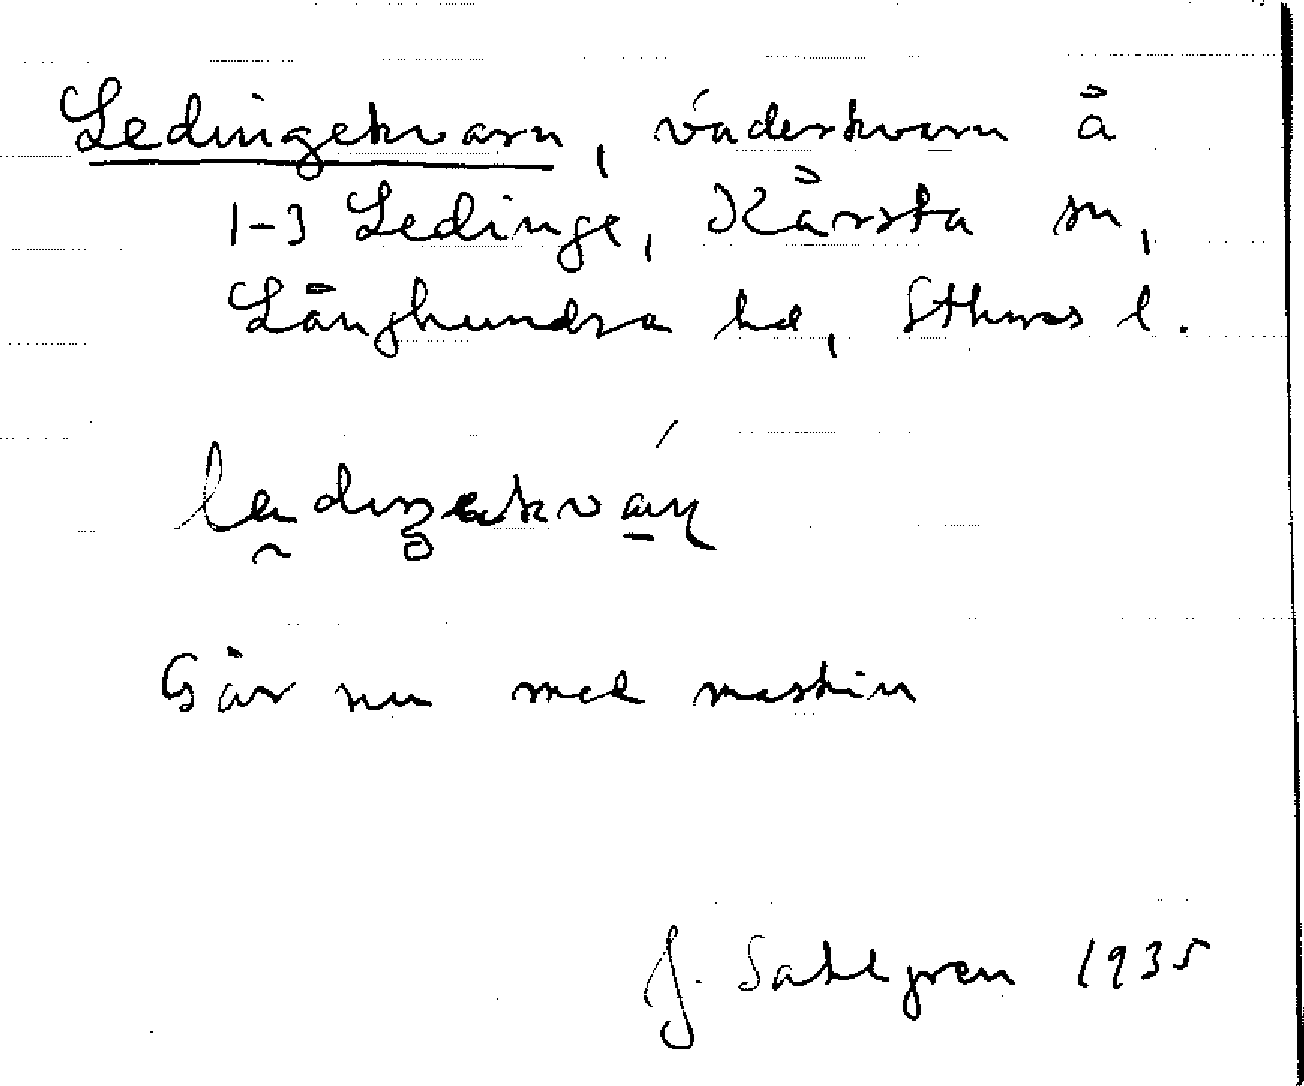 Ledingekvarn, väderkvarn å
1-3 Ledinge, Kårsta sn,
Långhundra hd, Sthms l.
Går nu med maskin
J. Sahlgren 1935